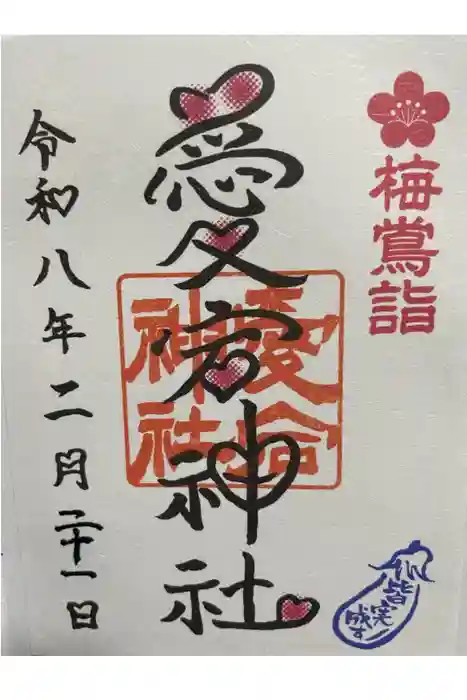 梅鴬詣
愛宕神社
愛宕
神社
令和八年二月二十一日